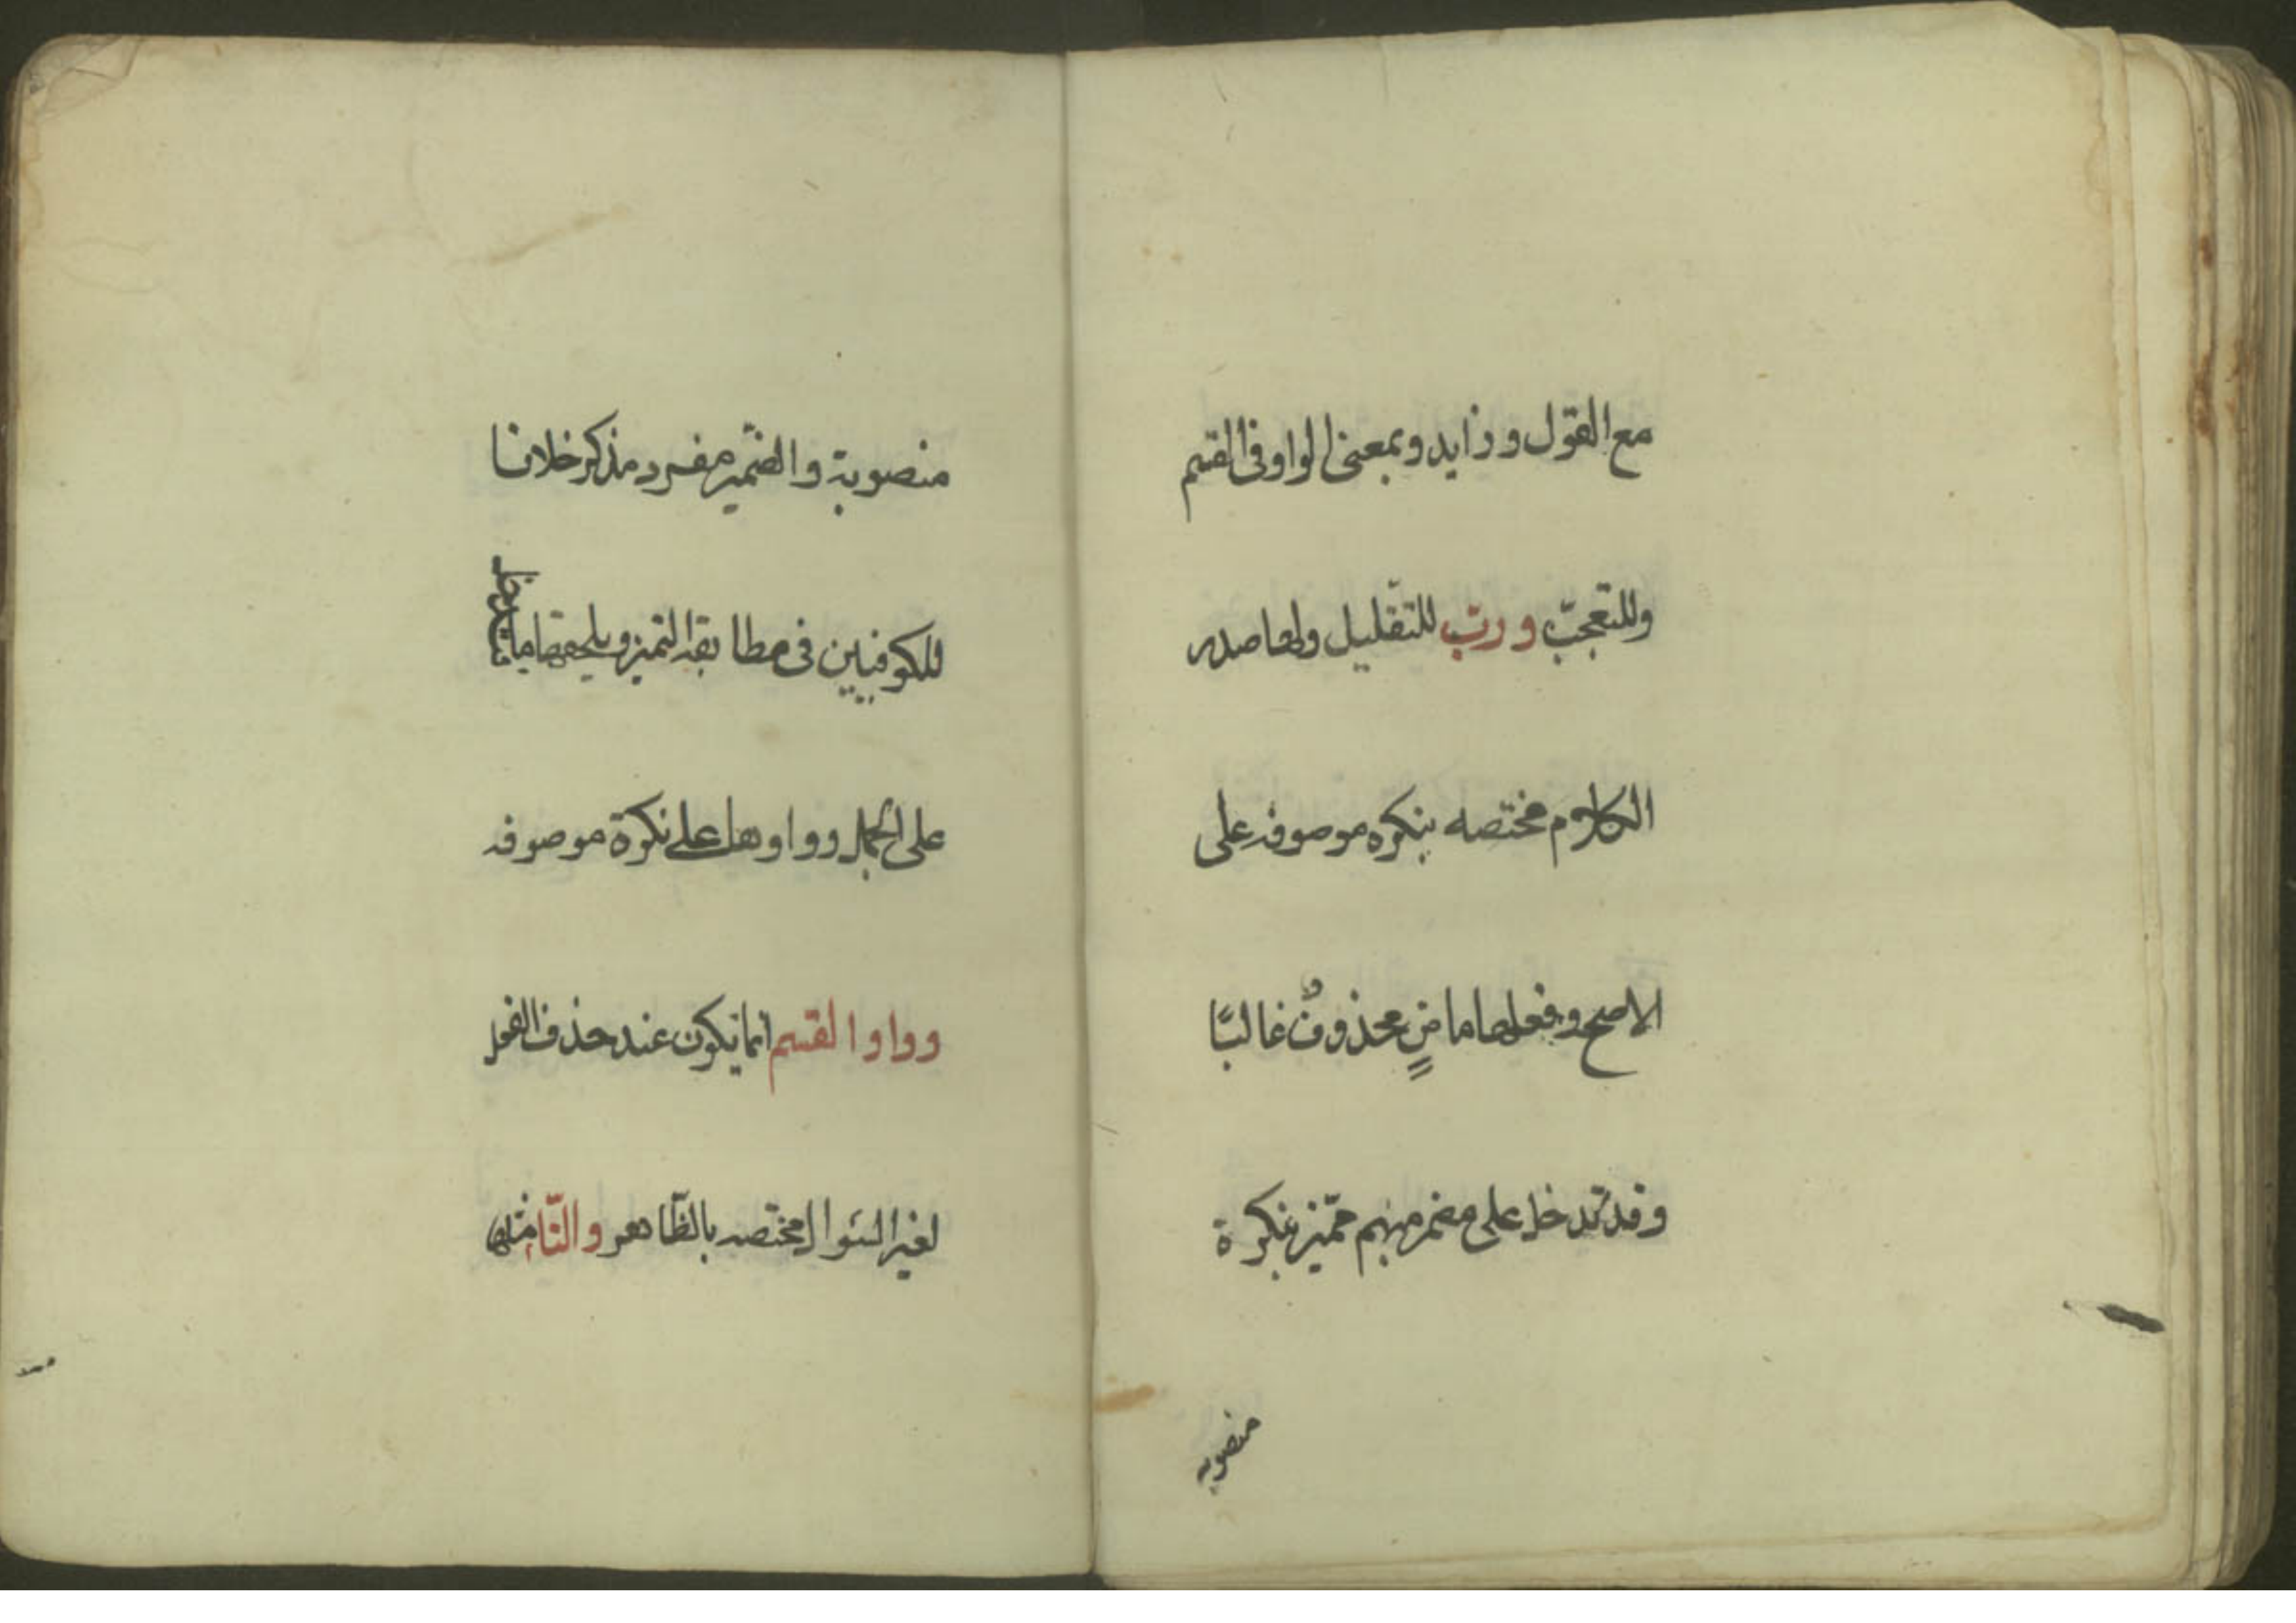 مع القول وزايد وبمعنى الواو في القسم
وللتعجّب وربّ للتقليل ولها صدر
الكلام مختصه بنكره موصوفه على
الاصح وفعلها ماضٍ محذوفٌ غالبًا
وقد تدخل على مضمر مبهم مميّز بنكرة
منصوبه
منصوبة والضّمير مفرد مذكر خلافا
للكوفيين فى مطابقة التميز ويلحقها ما فتدخل
على الجمل وواو وهل على نكرة موصوفه
وواو القسم انما يكون عند حذف الفعل
لغير السّوال مختصه بالظّاهر والتّاء مثلها